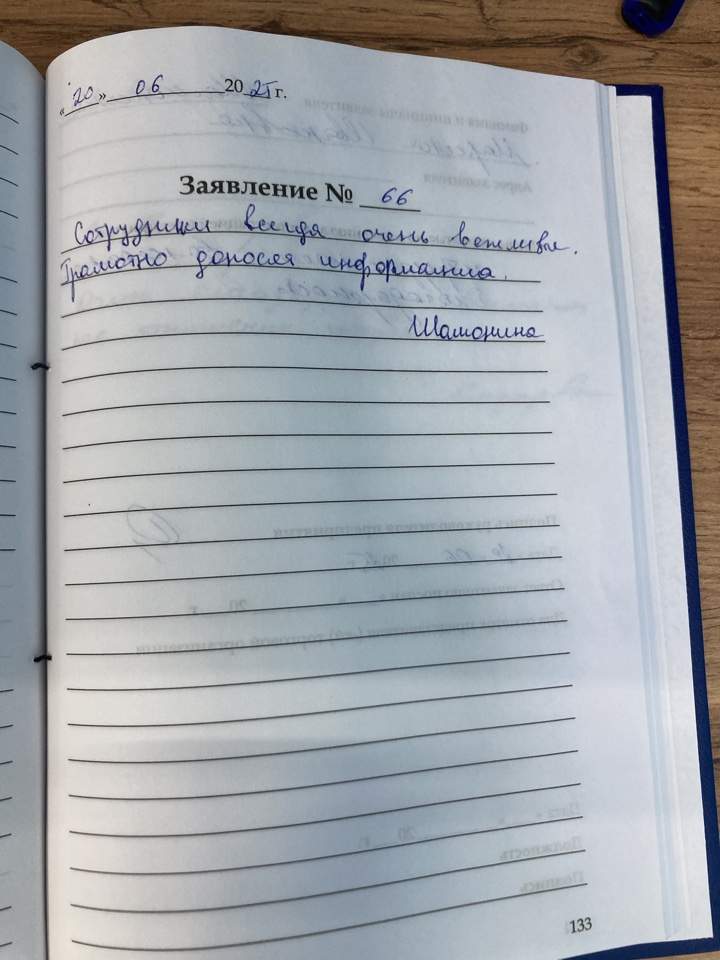 «20» 06 2025 г.
Заявление № 66
Сотрудники всегда очень вежливы.
Грамотно доносят информацию.
Шамонина
133